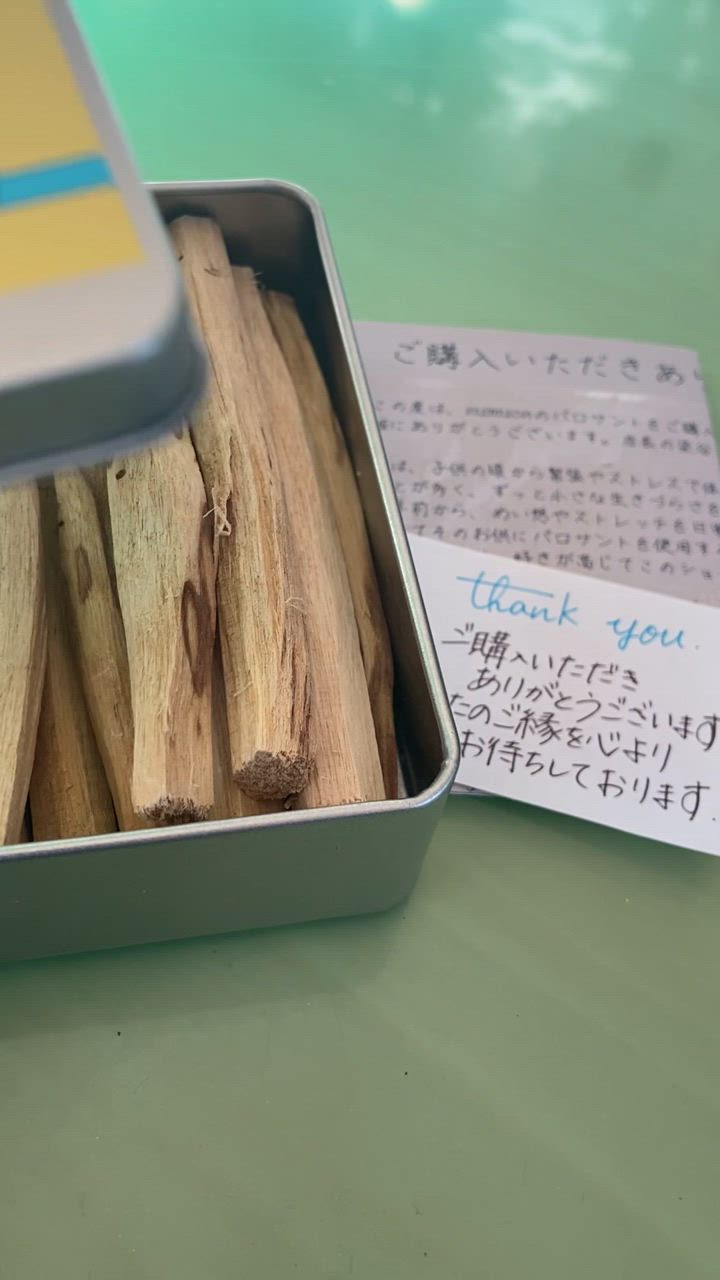 ご購入いただきあ
この度は、 のパロサントをご購
にありがとうございます。店長の
は、子供の頃から緊張やストレスで体
が多く、ずっと小さな生きづらさを
前から、めい想やストレッチを日
てそのお供にパロサントを使用す
好きが高じてこのショ
thank you.
ご購入いただき
ありがとうございます
たのご縁を心より
お待ちしております.